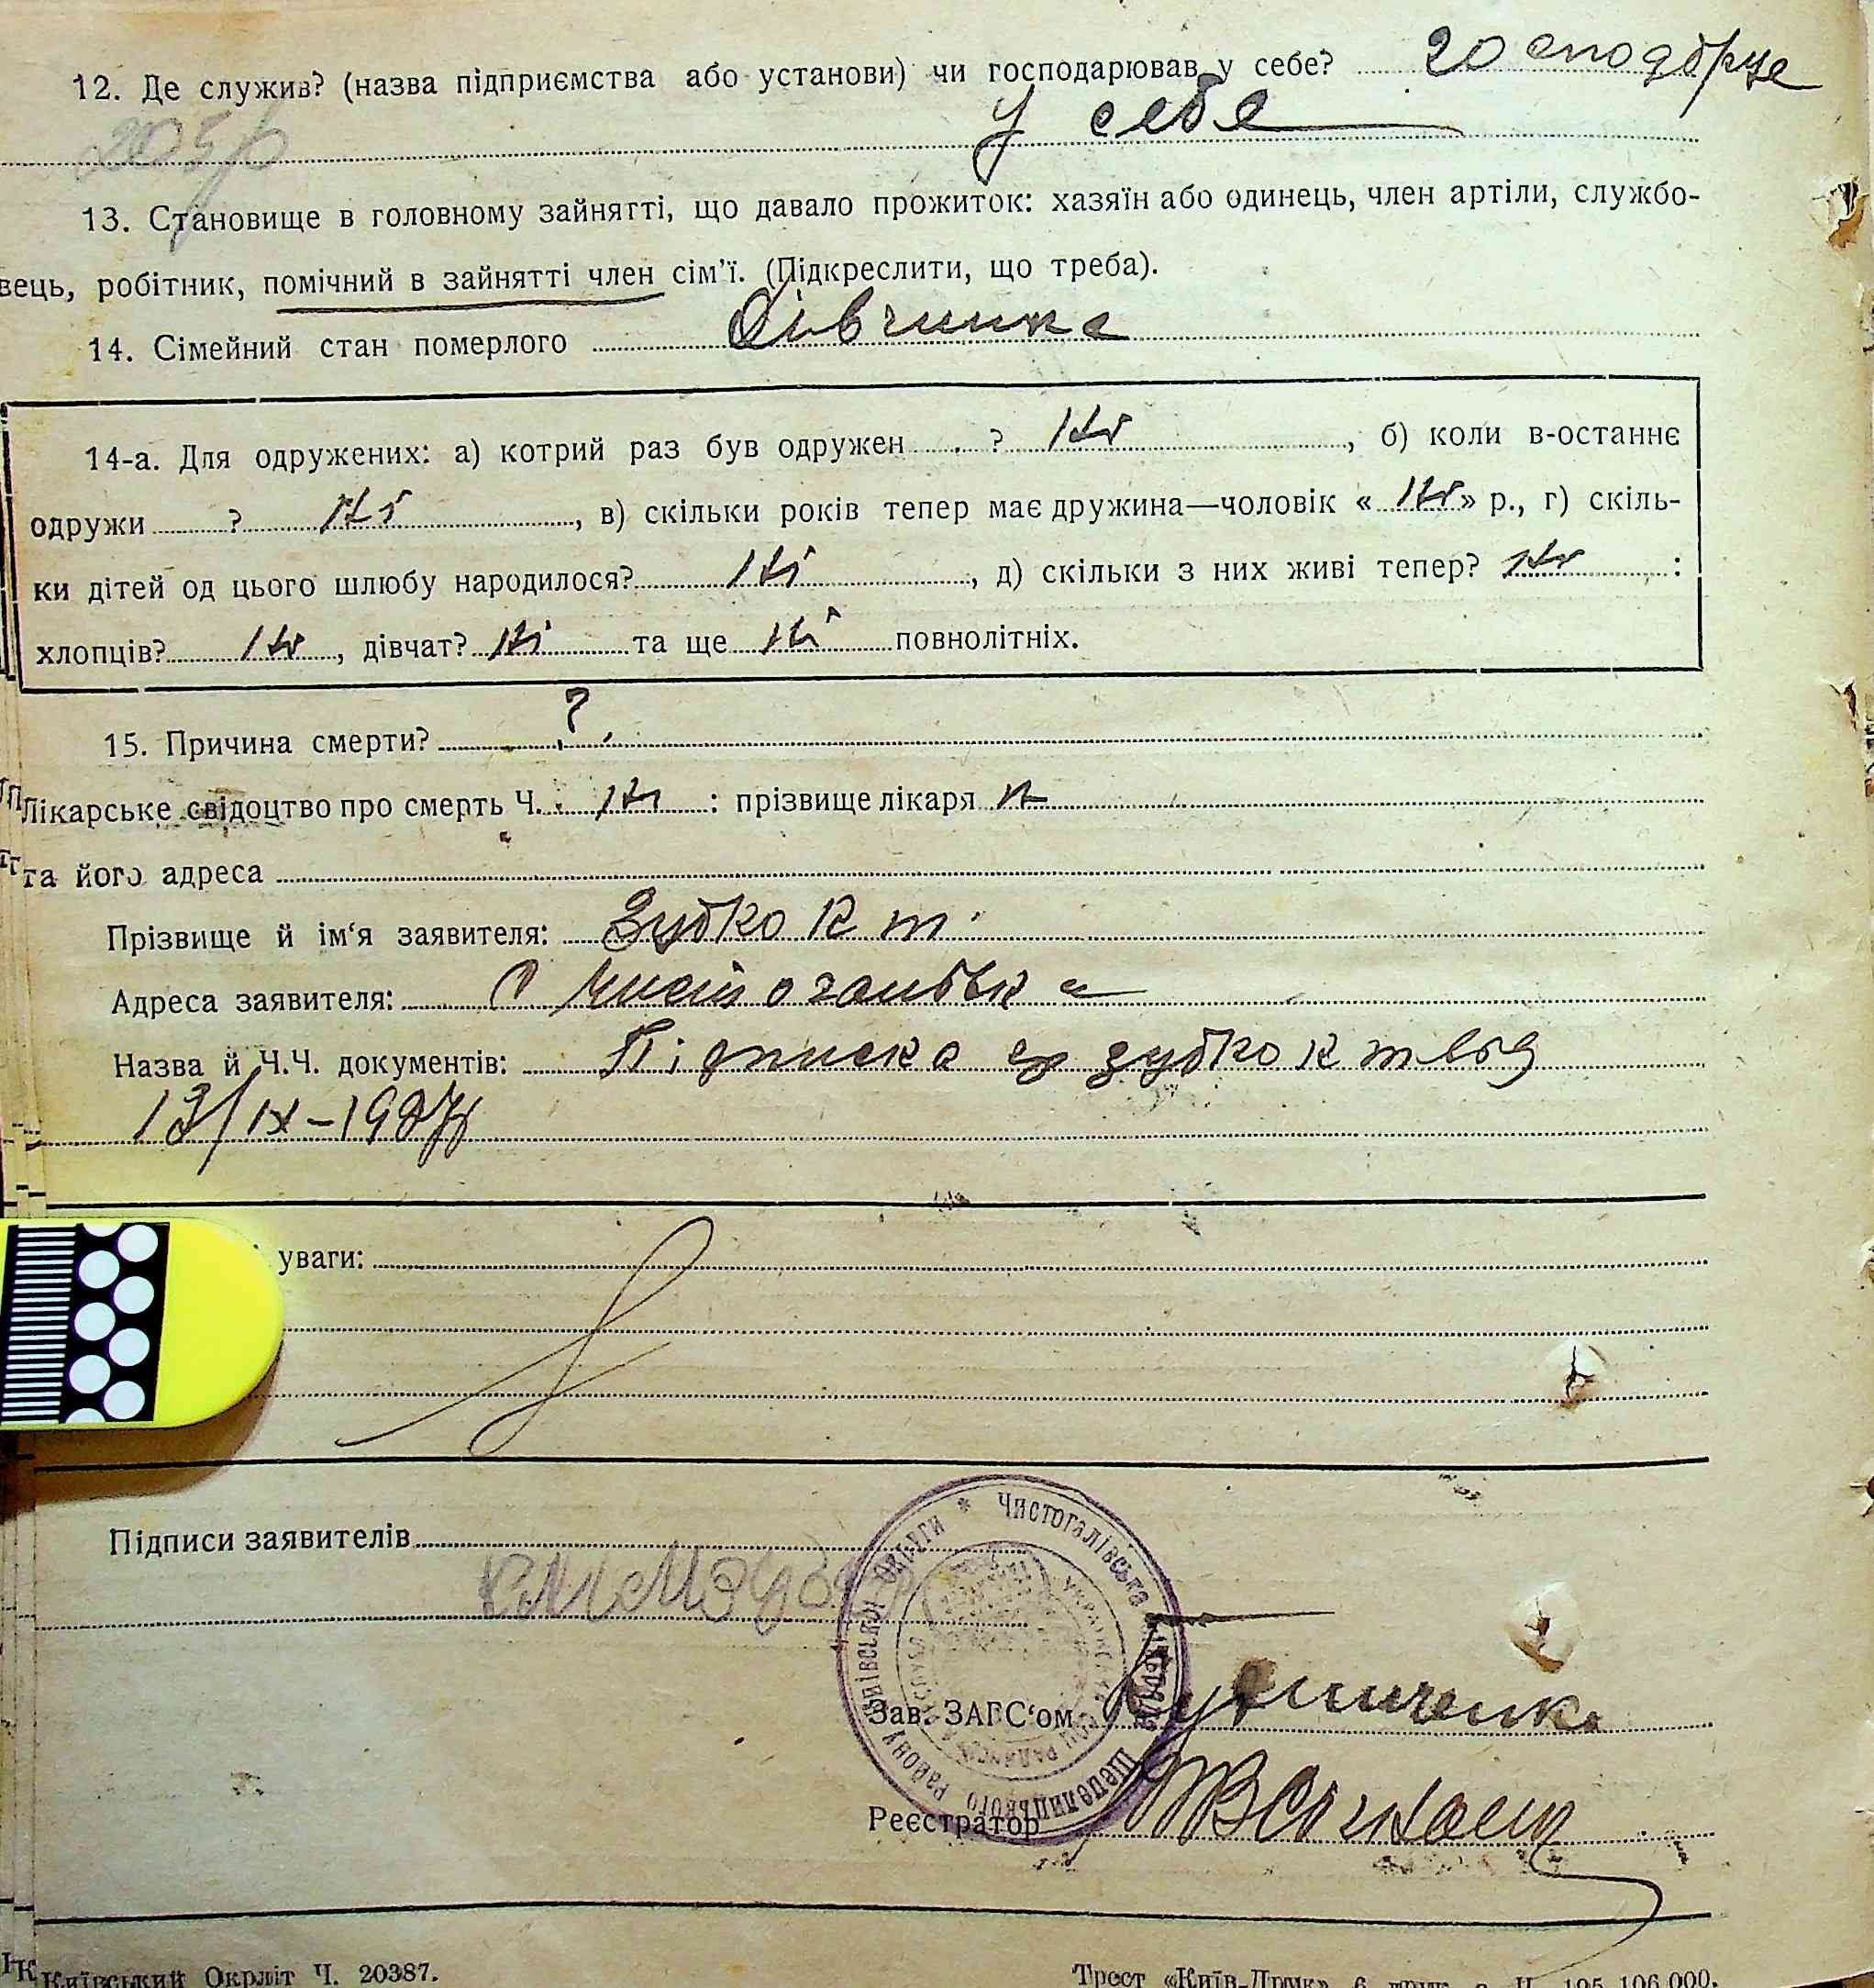 12. Де служив? (назва підприємства або установи) чи господарював у себе? 20 сподорце
у себе
13. Становище в головному зайнятті, що давало прожиток: хазяїн або одинець, член артіли, службо-
вець, робітник, помічний в зайнятті член сім’ї. (Підкреслити, що треба).
14. Сімейний стан померлого Дівчинка
14-а. Для одружених: а) котрий раз був одружен ? Ні, б) коли в-останнє
одружи ? Ні, в) скільки років тепер має дружина—чоловік «Ні» р., г) скіль-
ки дітей од цього шлюбу народилося? Ні, д) скільки з них живі тепер? Ні :
хлопців? Ні, дівчат? Ні та ще Ні повнолітніх.
15. Причина смерти? ?
Лікарське свідоцтво про смерть Ч. Ні : прізвище лікаря
та його адреса
Прізвище й ім‘я заявителя: Зубко К т
Адреса заявителя: С Чистогалівка
Назва й Ч.Ч. документів: Підписка зубко к
13/IX-1927р
уваги:
Підписи заявителів
Чистогалівська Шепелицького району Київської округи
Зав. ЗАГС‘ом
Реєстратор
Київський Окрліт Ч. 20387.
Трест «Київ-Друк»